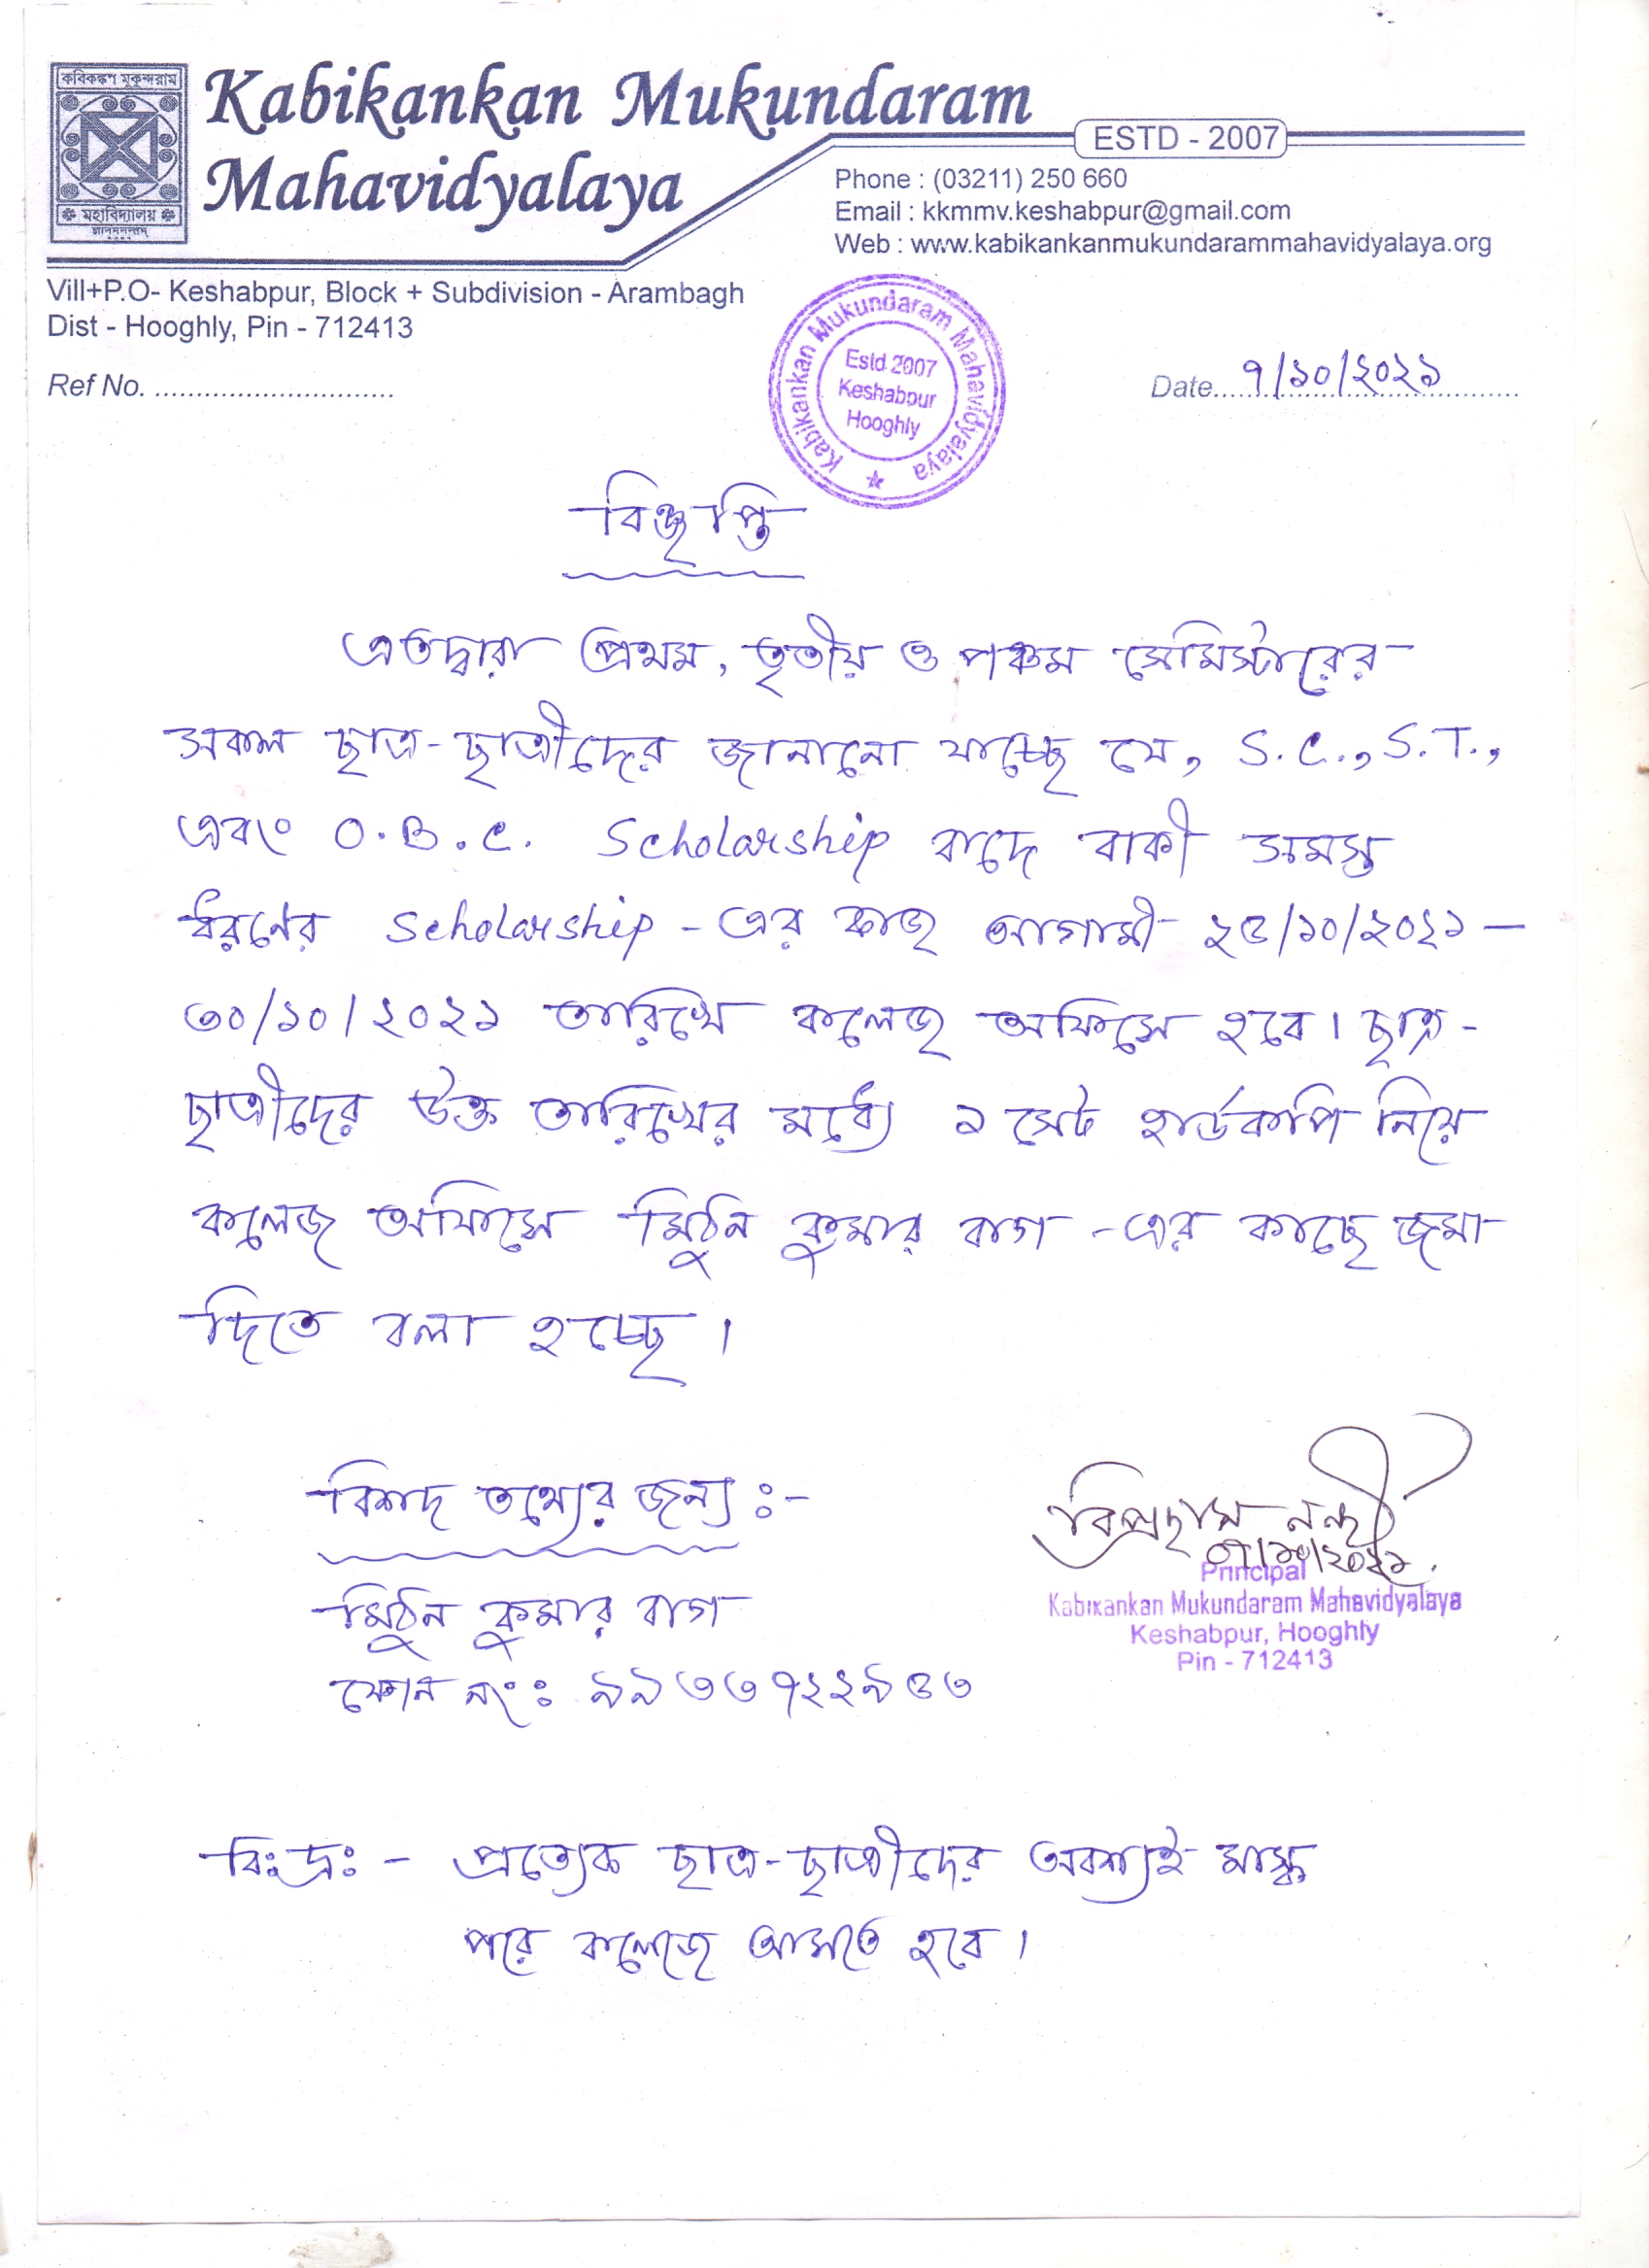 কবিকঙ্কণ মুকুন্দরাম
মহাবিদ্যালয়
Kabikankan Mukundaram
Mahavidyalaya
ESTD - 2007
Phone : (03211) 250 660
Email : kkmmv.keshabpur@gmail.com
Web : www.kabikankanmukundarammahavidyalaya.org
Vill+P.O- Keshabpur, Block + Subdivision - Arambagh
Dist - Hooghly, Pin - 712413
Kabikankan Mukundaram Mahavidyalaya
Estd 2007
Keshabpur
Hooghly
Ref No. ..............................
Date....৭/১০/২০২১
বিজ্ঞপ্তি
এতদ্বারা প্রথম, তৃতীয় ও পঞ্চম সেমিস্টারের
সকল ছাত্র-ছাত্রীদের জানানো যাচ্ছে যে, S.C., S.T.,
এবং O.B.C. Scholarship বাদে বাকী সমস্ত
ধরণের Scholarship -এর কাজ আগামী ২৫/১০/২০২১ —
৩০/১০/২০২১ তারিখে কলেজ অফিসে হবে। ছাত্র-
ছাত্রীদের উক্ত তারিখের মধ্যে ১ সেট হার্ডকপি নিয়ে
কলেজ অফিসে মিঠুন কুমার বাগ -এর কাছে জমা
দিতে বলা হচ্ছে।
বিশদ তথ্যের জন্য ঃ-
মিঠুন কুমার বাগ
ফোন নং ঃ ৯৯৩৩৭২২৯৫৩
০৭/১০/২০২১.
Principal
Kabikankan Mukundaram Mahavidyalaya
Keshabpur, Hooghly
Pin - 712413
বিঃদ্রঃ - প্রত্যেক ছাত্র-ছাত্রীদের অবশ্যই মাস্ক
পরে কলেজে আসতে হবে।